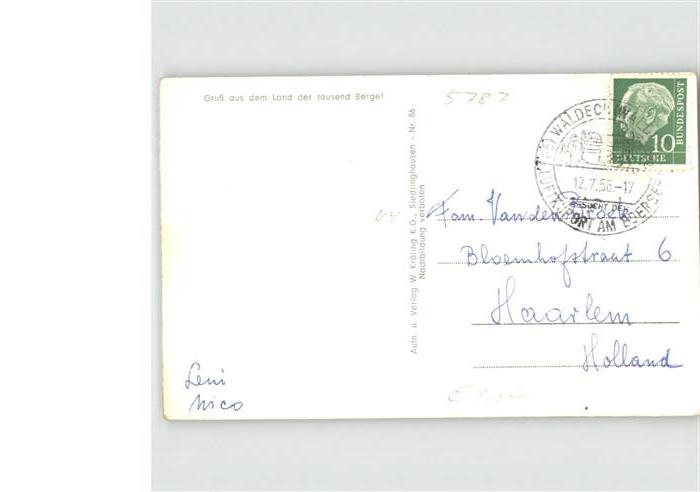 Gruß aus dem Land der tausend Berge!
5787
BUNDESPOST
10
DEUTSCHE
WALDECK
12.7.56.-17
LUFTKURORT AM EDERSEE
Aufn. u. Verlag W. Kräling K.G., Siedlinghausen - Nr. 66
Nachbildung verboten
Fam. Vanden Broek
Bloemhofstraat 6
Haarlem
Holland
Leni
Nico